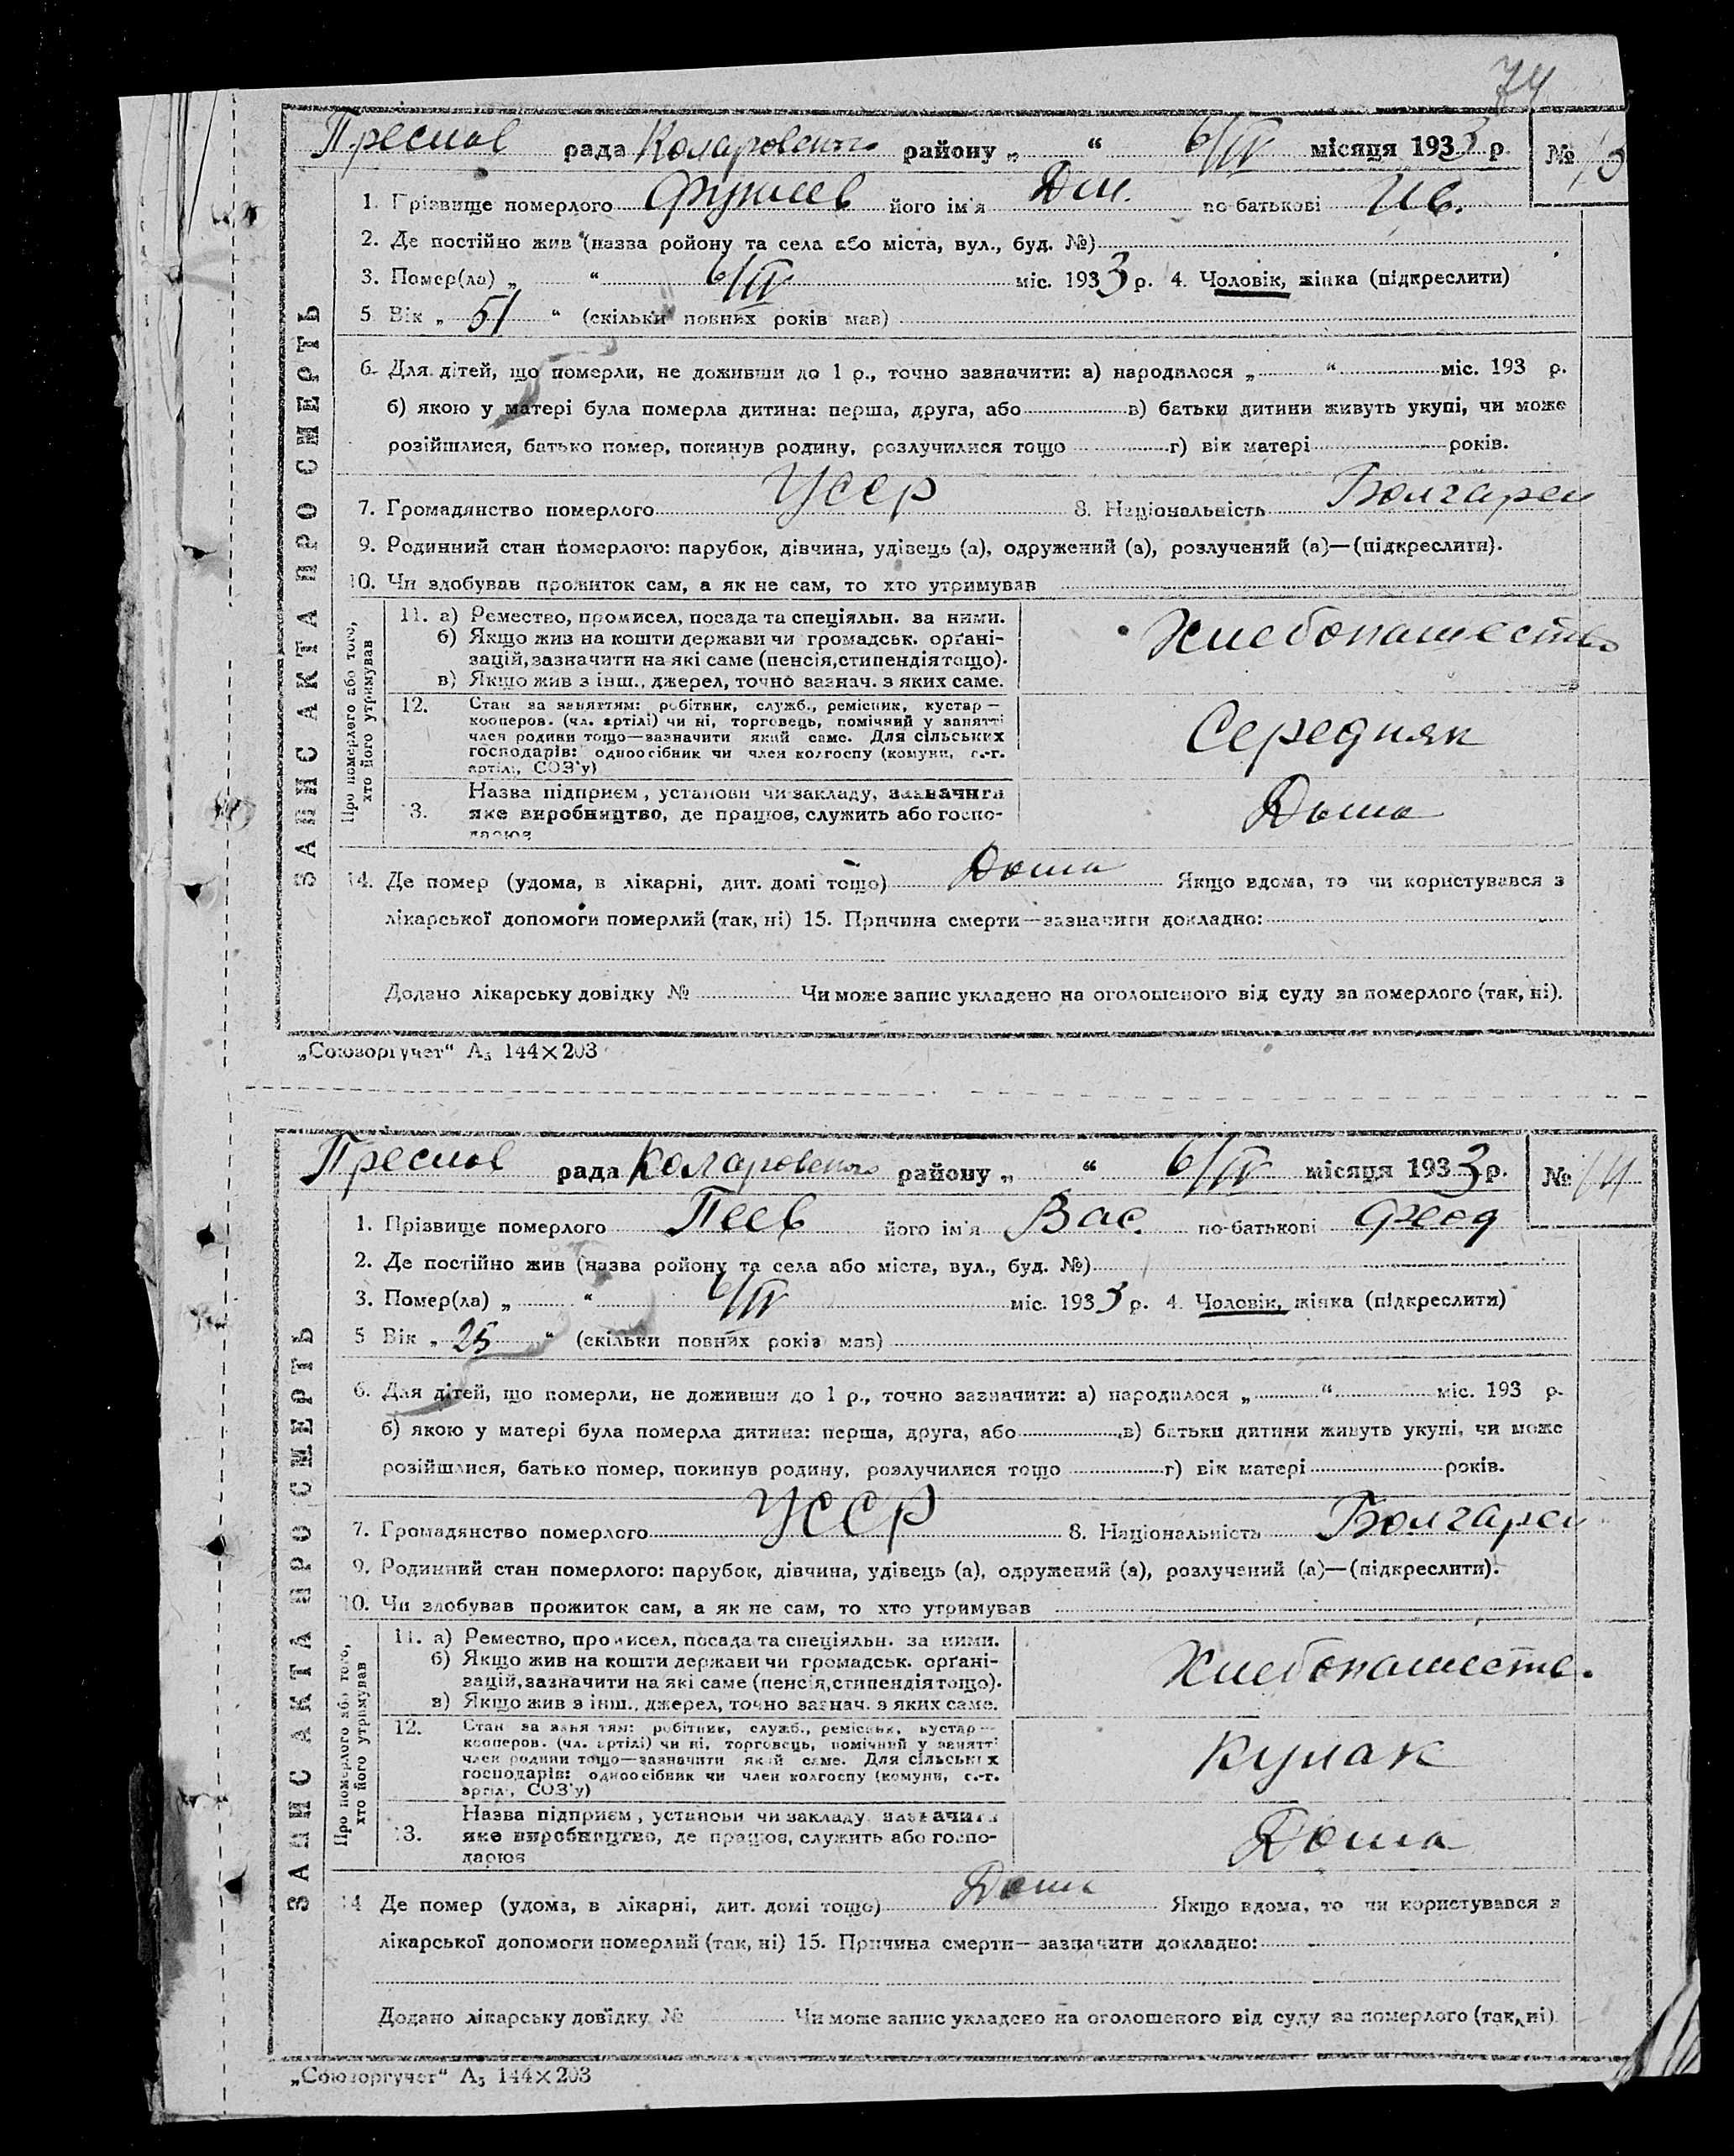 74
Преслав рада Коларовского району „ “ 6/IV місяця 1933 р. №
1. Прізвище померлого його ім'я Дм. по-батькові Ив.
2. Де постійно жив (назва ройону та села або міста, вул., буд. №)
3. Помер(ла) „ “ 6/IV міс. 1933 р. 4. Чоловік, жінка (підкреслити)
5 Вік „ 51 “ (скільки повних років мав)
6. Для дітей, що померли, не доживши до 1 р., точно зазначити: а) народилося „ “ міс. 193 р.
б) якою у матері була померла дитина: перша, друга, або в) батьки дитини живуть укупі, чи може
розійшлися, батько помер, покинув родину, розлучилися тощо г) вік матері років.
7. Громадянство померлого УССР 8. Національність Болгарен
9. Родинний стан померлого: парубок, дівчина, удівець (а), одружений (а), розлучений (а)—(підкреслити).
10. Чи здобував прожиток сам, а як не сам, то хто утримував
ЗАПИС АКТА ПРО СМЕРТЬ
Про померлого або того,
хто його утримував
11. а) Ремество, промисел, посада та спеціяльн. за ними.
б) Якщо жив на кошти держави чи громадськ. орґані-
зацій, зазначити на які саме (пенсія, стипендія тощо).
в) Якщо жив з інш., джерел, точно зазнач. з яких саме.
Хлебопашество
12. Стан за заняттям: робітник, служб., ремісник, кустар—
кооперов. (чл. артілі) чи ні, торговець, помічний у занятті
член родини тощо—зазначити який саме. Для сільських
господарів: одноосібник чи член колгоспу (комуни, с.-г.
артілі, СОЗ'у)
Середняк
Назва підприєм, установи чи закладу, зазначити
13. яке виробництво, де працює, служить або госпо-
дарює
Дома
14. Де помер (удома, в лікарні, дит. домі тощо) Дома Якщо вдома, то чи користувався з
лікарської допомоги померлий (так, ні) 15. Причина смерти—зазначити докладно:
Додано лікарську довідку № Чи може запис укладено на оголошеного від суду за померлого (так, ні).
„Союзоргучет“ А₅ 144×203
Преслав рада Коларовского району „ “ 6/IV місяця 1933 р. № 14
1. Прізвище померлого Пеев його ім'я Вас. по-батькові Феод
2. Де постійно жив (назва ройону та села або міста, вул., буд. №)
3. Помер(ла) „ “ 6/IV міс. 1933 р. 4. Чоловік, жінка (підкреслити)
5 Вік „ 25 “ (скільки повних років мав)
6. Для дітей, що померли, не доживши до 1 р., точно зазначити: а) народилося „ “ міс. 193 р.
б) якою у матері була померла дитина: перша, друга, або в) батьки дитини живуть укупі, чи може
розійшлися, батько помер, покинув родину, розлучилися тощо г) вік матері років.
7. Громадянство померлого УССР 8. Національність Болгарен
9. Родинний стан померлого: парубок, дівчина, удівець (а), одружений (а), розлучений (а)—(підкреслити).
10. Чи здобував прожиток сам, а як не сам, то хто утримував
ЗАПИС АКТА ПРО СМЕРТЬ
Про померлого або того,
хто його утримував
11. а) Ремество, промисел, посада та спеціяльн. за ними.
б) Якщо жив на кошти держави чи громадськ. орґані-
зацій, зазначити на які саме (пенсія, стипендія тощо).
в) Якщо жив з інш., джерел, точно зазнач. з яких саме.
Хлебопашеств.
12. Стан за заняттям: робітник, служб., ремісник, кустар—
кооперов. (чл. артілі) чи ні, торговець, помічний у занятті
член родини тощо—зазначити який саме. Для сільських
господарів: одноосібник чи член колгоспу (комуни, с.-г.
артілі, СОЗ'у)
Кулак
Назва підприєм, установи чи закладу, зазначити
13. яке виробництво, де працює, служить або госпо-
дарює
Дома
14 Де помер (удома, в лікарні, дит. домі тощо) Дома Якщо вдома, то чи користувався з
лікарської допомоги померлий (так, ні) 15. Причина смерти—зазначити докладно:
Додано лікарську довідку № Чи може запис укладено на оголошеного від суду за померлого (так, ні)
„Союзоргучет“ А₅ 144×203